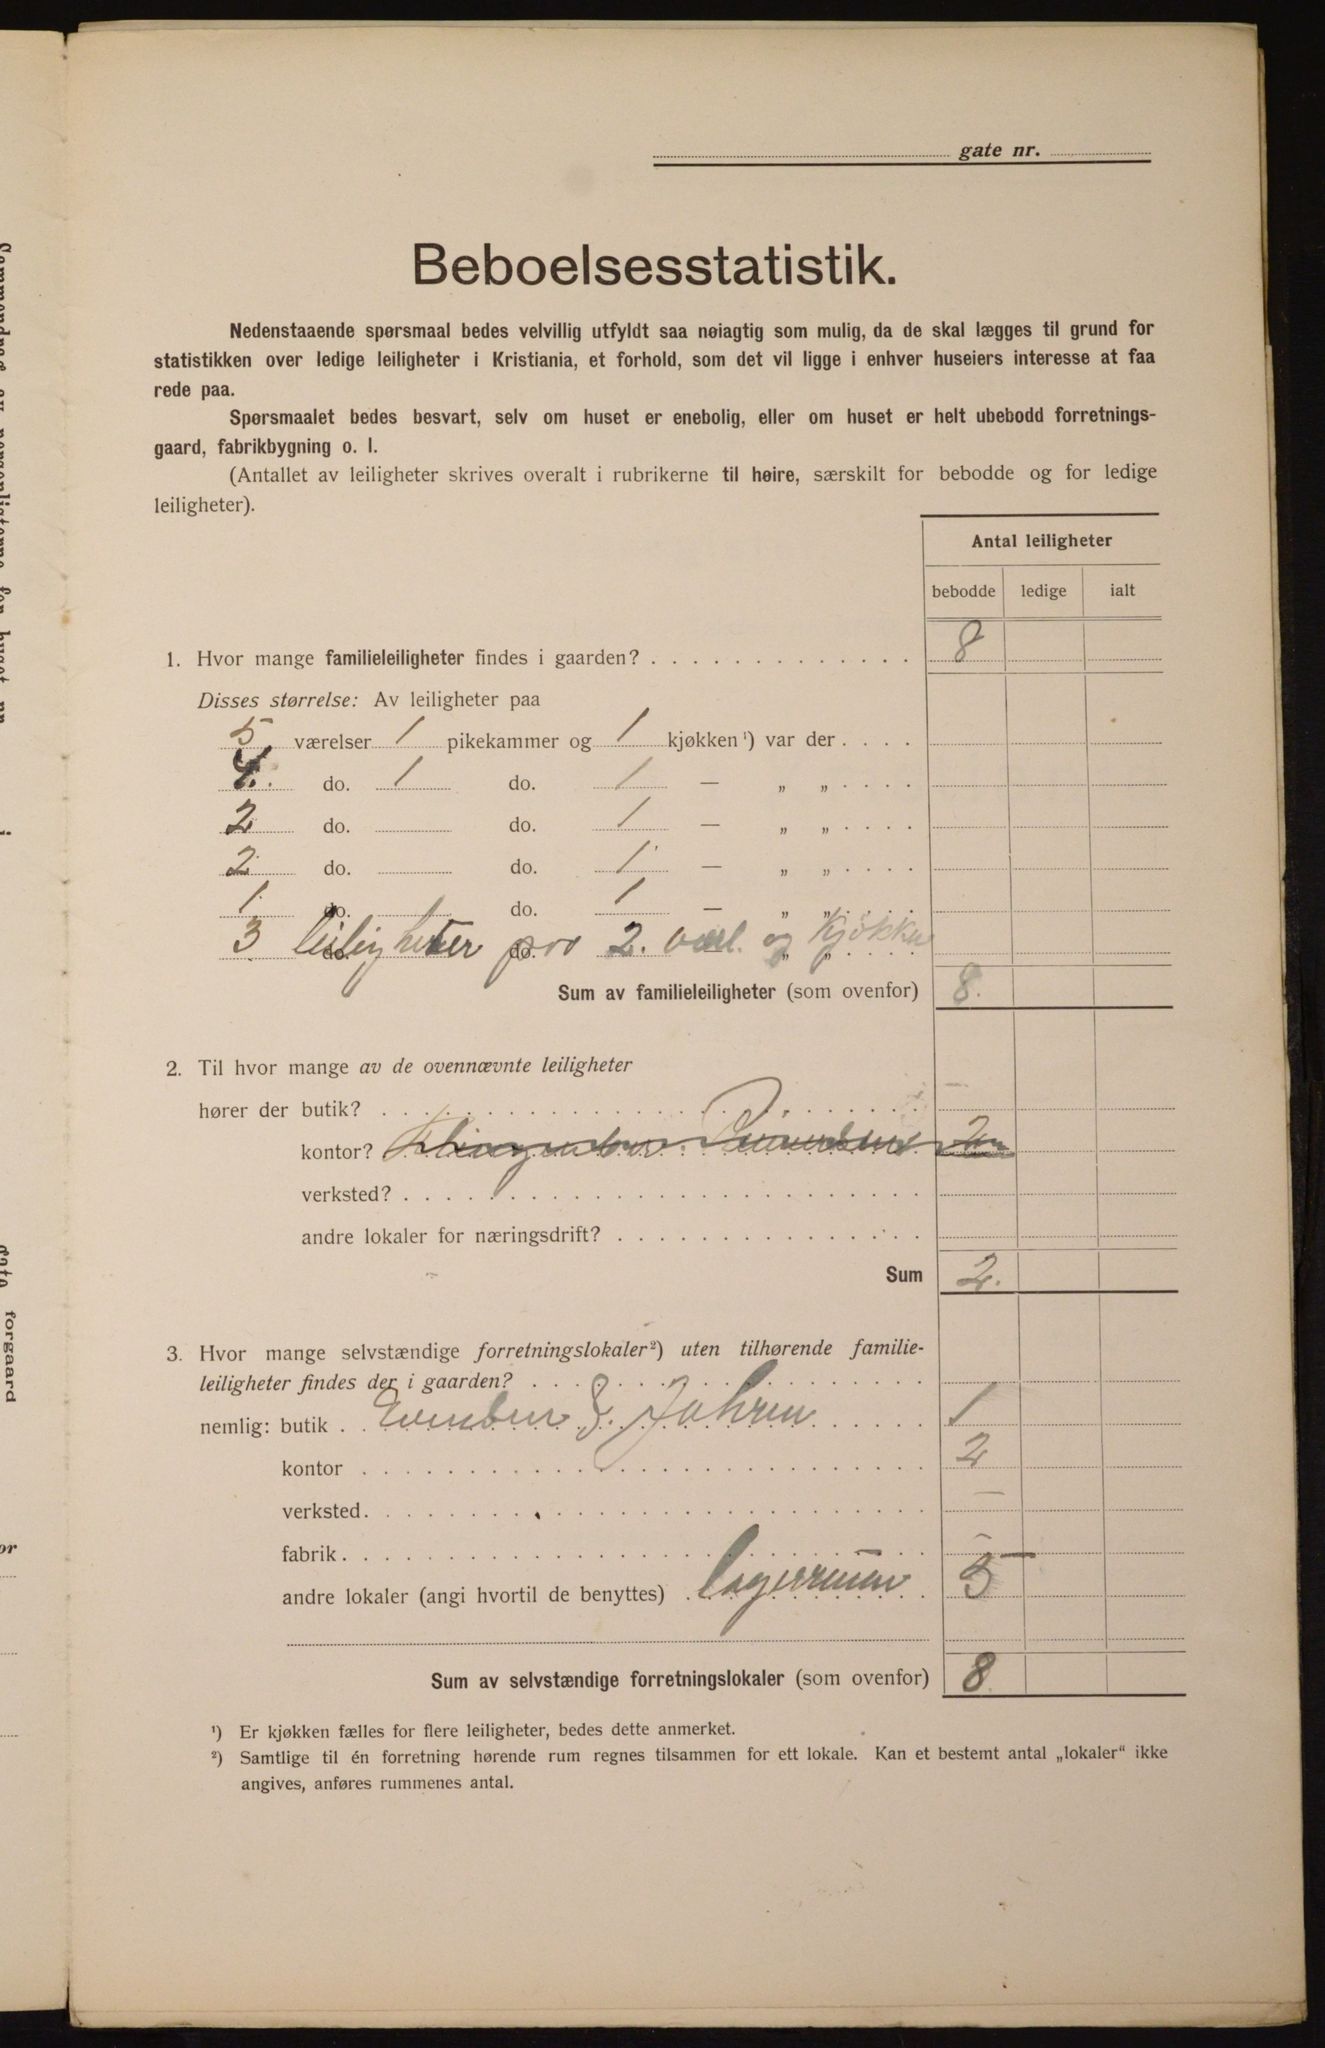 gate nr.
Beboelsesstatistik.
Nedenstaaende spørsmaal bedes velvillig utfyldt saa nøiagtig som mulig, da de skal lægges til grund for
statistikken over ledige leiligheter i Kristiania, et forhold, som det vil ligge i enhver huseiers interesse at faa
rede paa.
Spørsmaalet bedes besvart, selv om huset er enebolig, eller om huset er helt ubebodd forretnings-
gaard, fabrikbygning o. l.
(Antallet av leiligheter skrives overalt i rubrikerne til høire, særskilt for bebodde og for ledige
leiligheter).
Antal leiligheter
bebodde ledige ialt
1. Hvor mange familieleiligheter findes i gaarden? 8
Disses størrelse: Av leiligheter paa
5 værelser 1 pikekammer og 1 kjøkken ¹) var der
4. do. 1 do. 1 — „ „
2 do. do. 1 — „ „
2 do. do. 1 — „ „
1 do. do. 1 — „ „
3 leiligheter paa 2. værl. og Kjøkken
do. do. — „ „
Sum av familieleiligheter (som ovenfor) 8.
2. Til hvor mange av de ovennævnte leiligheter
hører der butik?
kontor? 2
verksted?
andre lokaler for næringsdrift?
Sum 2.
3. Hvor mange selvstændige forretningslokaler²) uten tilhørende familie-
leiligheter findes der i gaarden?
nemlig: butik 1
kontor 2
verksted. —
fabrik. —
andre lokaler (angi hvortil de benyttes) Lagerrum 5
Sum av selvstændige forretningslokaler (som ovenfor) 8
¹) Er kjøkken fælles for flere leiligheter, bedes dette anmerket.
²) Samtlige til én forretning hørende rum regnes tilsammen for ett lokale. Kan et bestemt antal „lokaler“ ikke
angives, anføres rummenes antal.